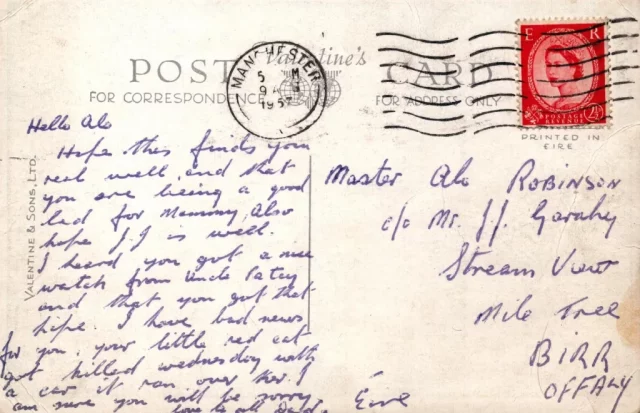 POST CARD
Valentine's
FOR CORRESPONDENCE
FOR ADDRESS ONLY
MANCHESTER
5 M
195
E R
POSTAGE
REVENUE
PRINTED IN
EIRE
VALENTINE & SONS, LTD.
Hello Alo
Hope this finds you
real well and that
you are being a good
lad for Mammy, Also
hope J.J is well.
I heard you got a nice
watch from Uncle Patsy
and that you got that
I have bad news
for you, your little red cat
got killed wednesday with
a car it ran over her I
am sure you will be sorry
love to all Dad
Master Alo ROBINSON
c/o Mr. J.J. Garahy
Stream View
Mile Tree
BIRR
OFFALY
Éire